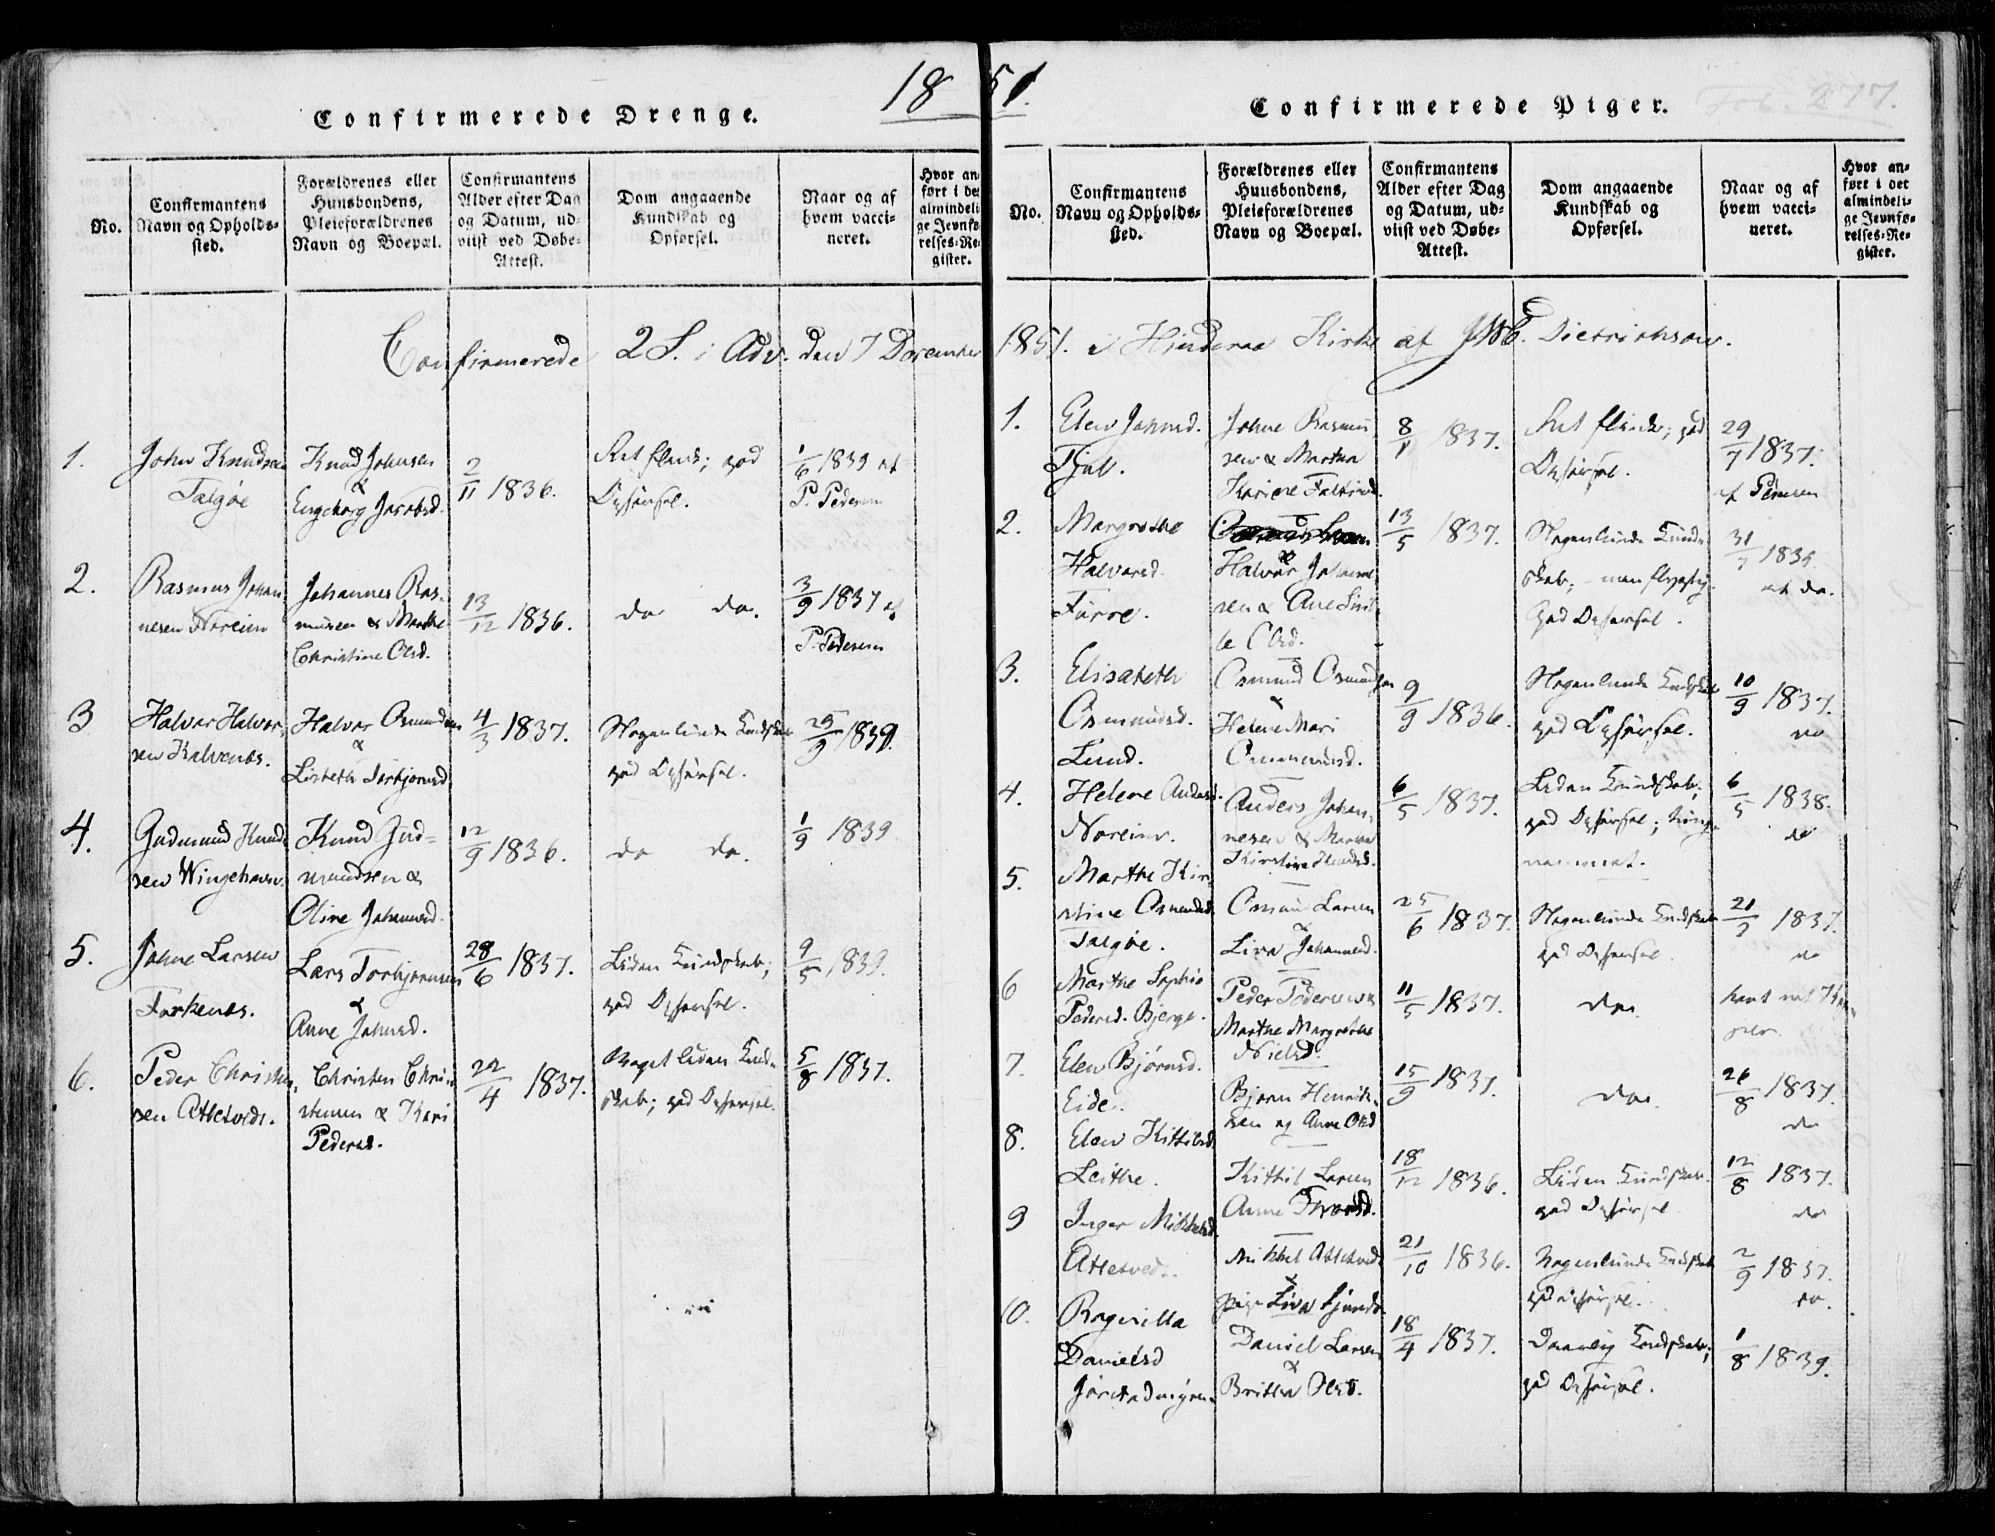 1851.
Confirmerede Drenge.
No.
Confirmantens
Navn og Opholds-
sted.
Forældrenes eller
Huusbondens,
Pleieforældrenes
Navn og Boepæl.
Confirmantens
Alder efter Dag
og Datum, ud-
viist ved Døbe-
Attest.
Dom angaaende
Kundskab og
Opførsel.
Naar og af
hvem vacci-
neret.
Hvor an-
ført i det
almindeli-
ge Jevnfø-
relses-Re-
gister.
Confirmerede 2 S. i Adv. den 7 December
1.
John Knudsen
Talgøe
Knud Johnsen
&
Engeborg Jacobsd.
2/11 1836.
Ret flink; god
Opførsel.
1/6 1839 af
P. Pedersen
2.
Rasmus Johan-
nesen Noreim
Johannes Ras-
musen & Marthe
Christine Olsd.
13/12 1836.
do do.
3/9 1837 af
P. Pedersen
3
Halvor Halvor-
sen Kalvenes.
Halvor Osmundsen
&
Lisbeth Torbjørnsd.
4/3 1837.
Nogenlunde Kundskab
god Opførsel.
25/9 1839.
4.
Gudmund Knud-
sen Wingehavn.
Knud Gud-
mundsen &
Oline Johannesd.
12/9 1836.
do do.
1/9 1839
5.
Johne Larsen
Forkenes.
Lars Torbjørnsen
&
Anne Johnsd.
28/6 1837.
Liden Kundskab;
god Opførsel.
9/5 1839.
6.
Peder Christen-
sen Attetveds.
Christen Chri-
stensen & Kari
Pedersd.
22/4 1837.
Meget liden Kund-
skab; god Opførsel.
5/8 1837.
Confirmerede Piger.
Fol. 277.
No.
Confirmantens
Navn og Opholds-
sted.
Forældrenes eller
Huusbondens,
Pleieforældrenes
Navn og Boepæl.
Confirmantens
Alder efter Dag
og Datum, ud-
viist ved Døbe-
Attest.
Dom angaaende
Kundskab og
Opførsel.
Naar og af
hvem vacci-
neret.
Hvor an-
ført i det
almindeli-
ge Jevnfø-
relses-Re-
gister.
1851. i Hinderaa Kirke af Dietrichson.
1.
Elen Johnsd.
Johne Rasmu-
sen & Martha
Karine
8/1 1837.
Ret flink; god
Opførsel.
29/7 1837.
af Pedersen
2.
Margrethe
Halvorsd.
Førre.
Halvor Johanne-
sen & Ane
Olsd.
13/5 1837.
Nogenlunde Kund-
skab, - men flygtig.
God Opførsel.
af do.
3.
Elisabeth
Osmundsd.
Lund.
Osmund Osmundsen
&
Helene Mari
Osmundsd.
9/9 1836.
Nogenlunde Kundskab
god Opførsel.
10/9 1837.
do
4.
Helene Andersd.
Noreim.
Anders Johan-
nesen & Martha
Kirstine Knudsd.
6/5 1837.
Liden Kundskab;
god Opførsel; tung-
nemmet.
6/5 1838.
do
5.
Marthe Kir-
stine Osmundsd.
Talgøe.
Osmund Larsen
&
Liva Johannesd.
25/6 1837.
Nogenlunde Kundskab
god Opførsel.
1837.
do
6
Marthe Sophie
Pedersd. Bjerge.
Peder Pedersen &
Marthe Margrethe
Nielsd.
11/5 1837.
do.
7.
Elen Bjørnsd.
Eide.
Bjørn Henrik-
sen og Anne Olsd
15/9 1837.
do.
26/8 1837.
do
8.
Elen Kittilsd.
Leithe.
Kittil Larsen
Anne
18/12 1836.
Liden Kundskab.
god Opførsel
12/8 1837.
do
9
Inger Mikkelsd.
Attetved.
Mikkel Attetved
&
Liva
21/10 1836.
Nogenlunde Kundskab
god Opførsel.
2/9 1837.
do.
10.
Ragnilla
Danielsd
Daniel Larsen
&
Britha Olsd.
18/4 1837.
Daarlig Kundskab;
god Opførsel.
1/8 1839.